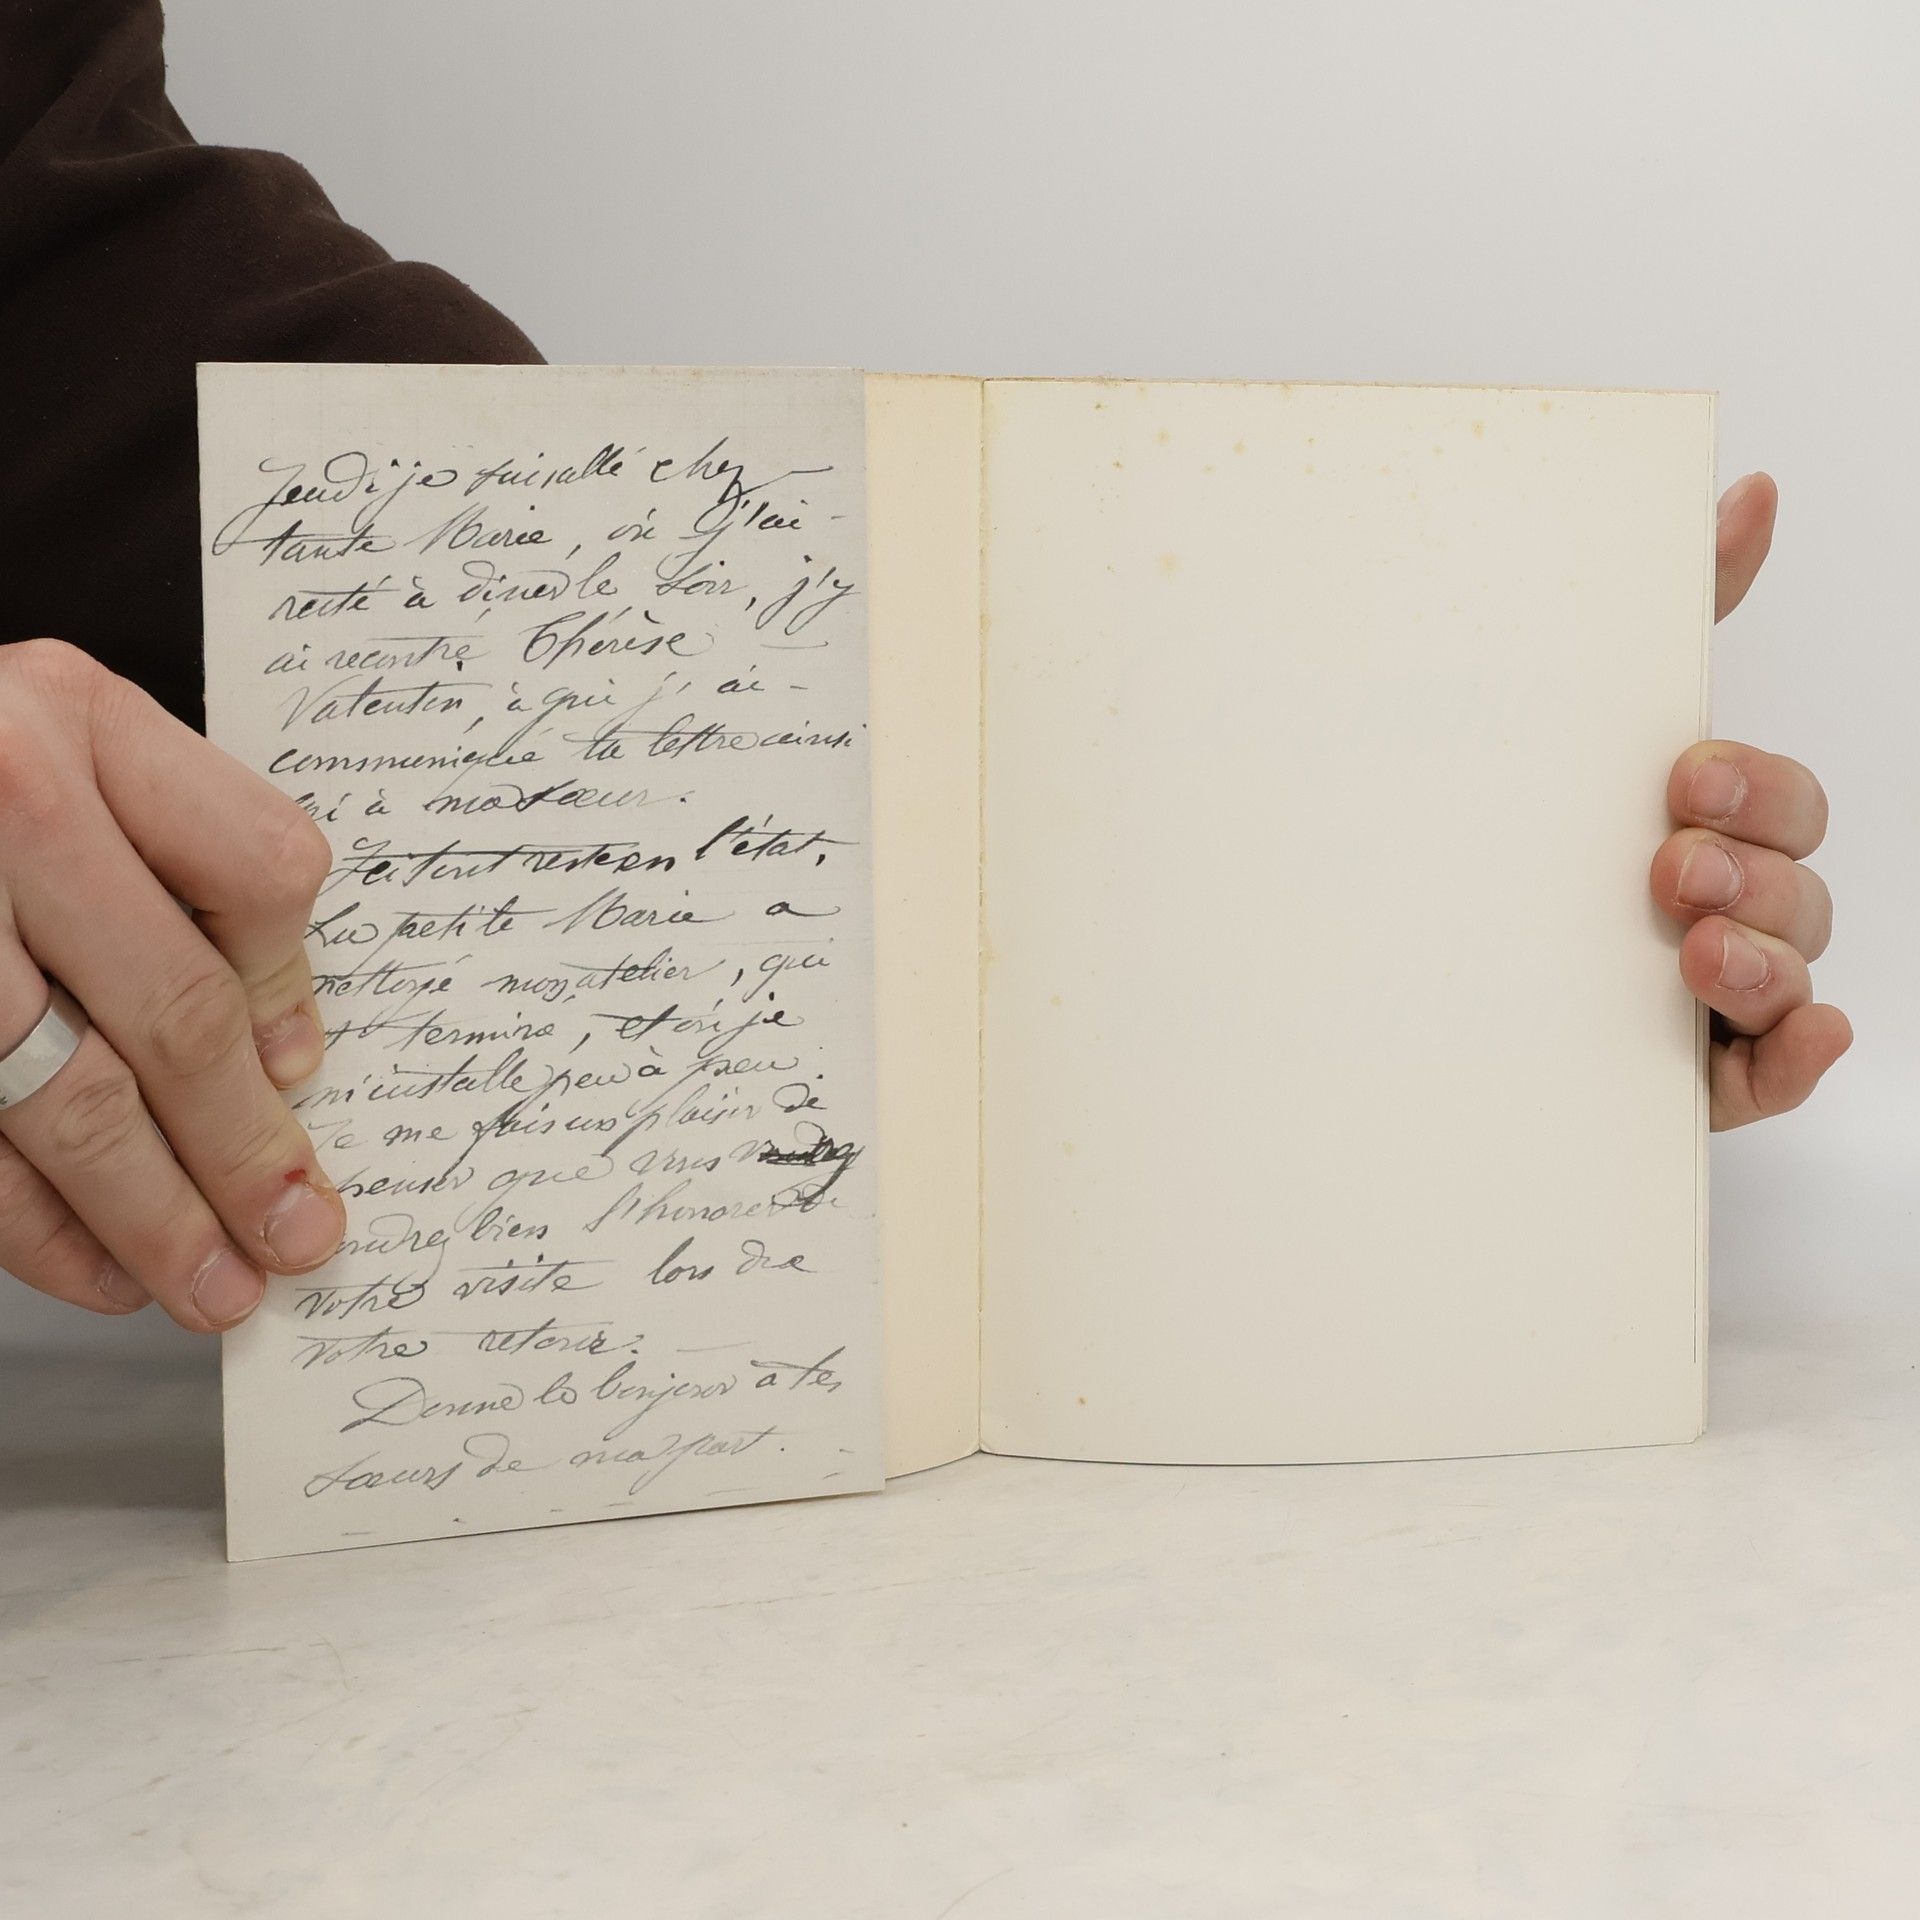 Jeudi je suis allé chez
tante Marie, où j'ai
resté à diner le soir, j'y
ai recontré Thérèse
Valentin, à qui j'ai
communiqué ta lettre ainsi
qui à ma sœur.
Ici tout reste en l'état.
La petite Marie a
nettoyé mon atelier, qui
est terminé, et où je
m'installe peu à peu.
Je me fais un plaisir de
penser que vous
voudrez bien l'honorer de
votre visite lors de
votre retour.
Donne le bonjour à tes
sœurs de ma part.